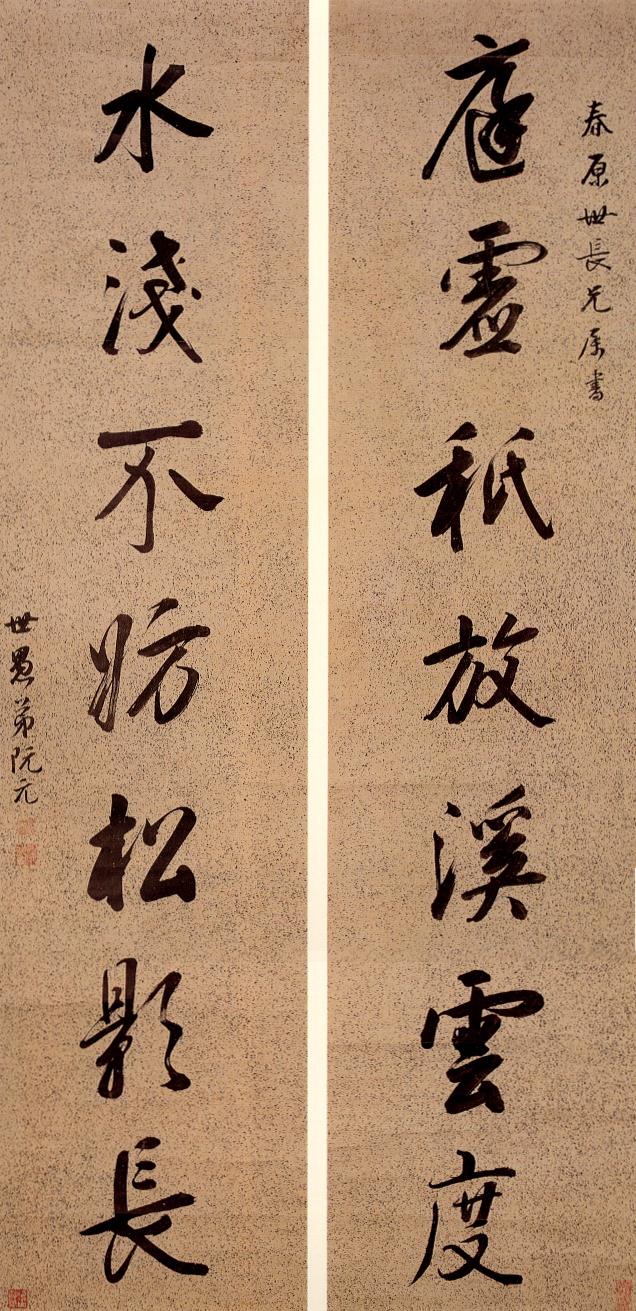 春原世長兄属書
庭虛秖放溪雲度
水淺不妨松影長
世愚弟阮元